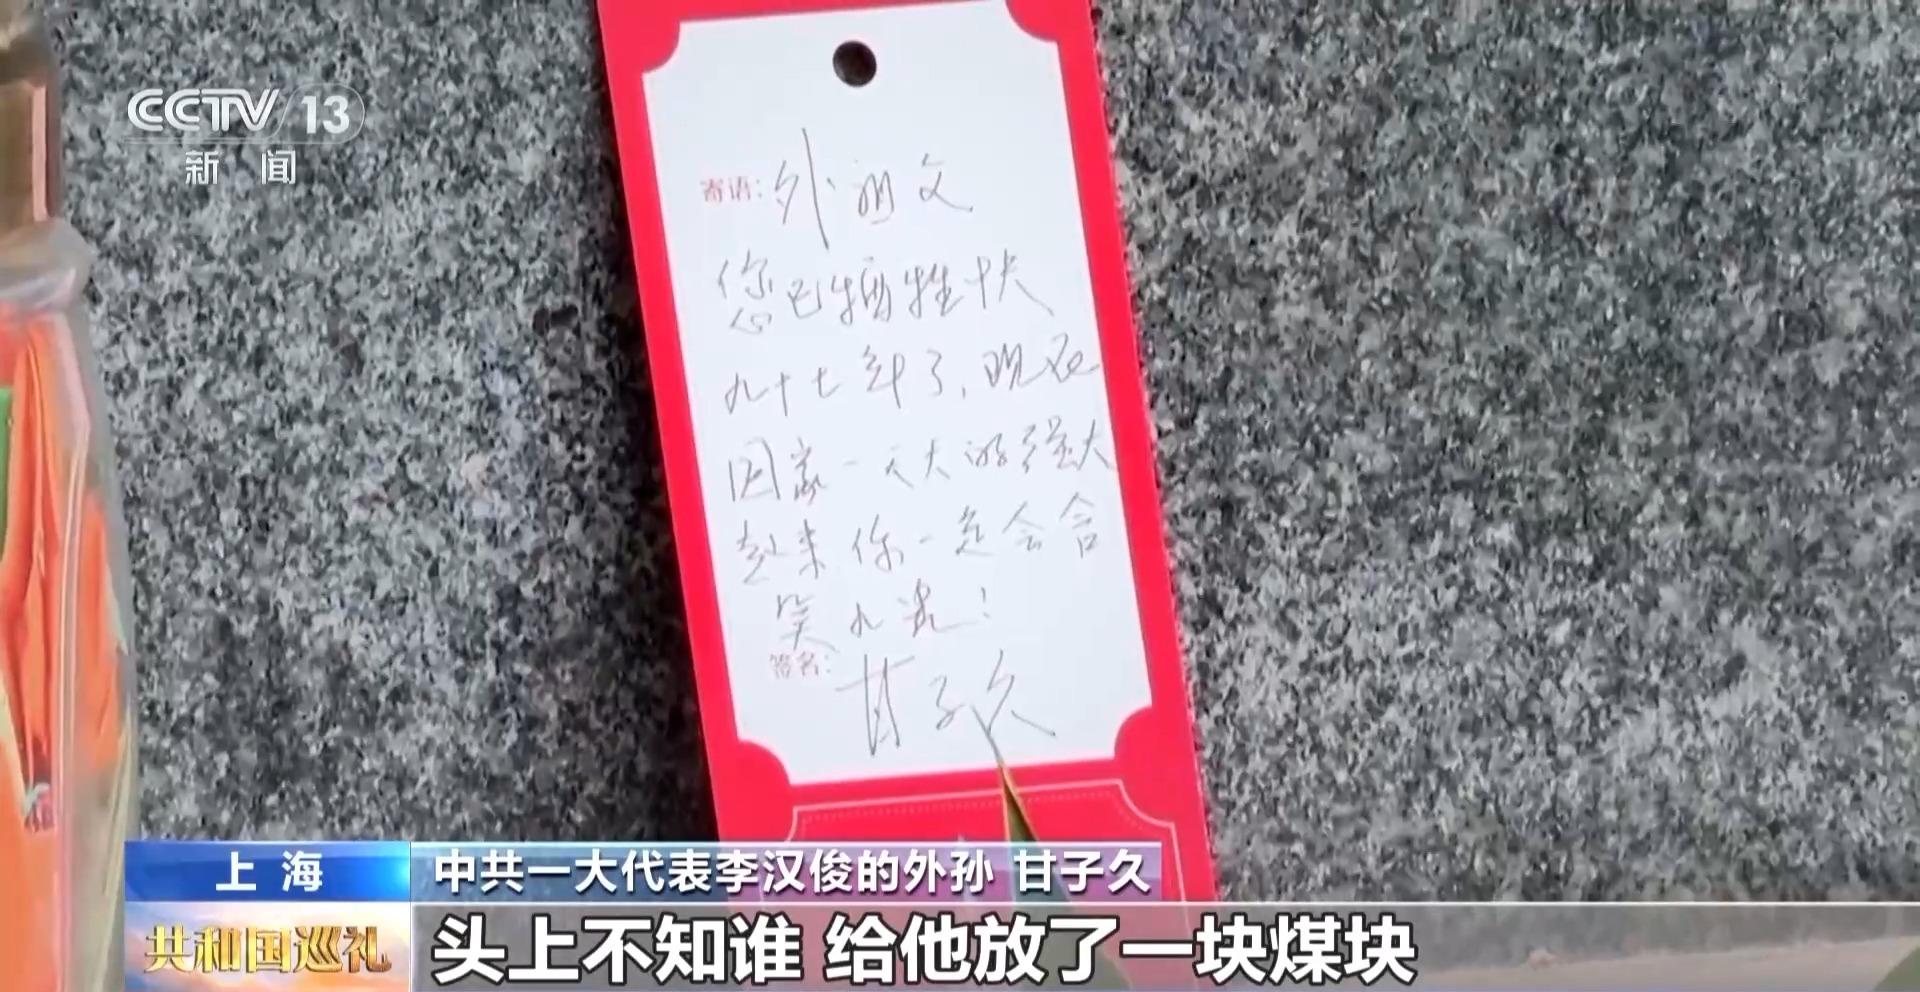 CCTV 13
新闻
寄语：外祖父
您已牺牲快
九十七年了，现在
国家一天天的强大
起来你一定会含
笑九泉！
签名：
甘子久
上海
中共一大代表李汉俊的外孙 甘子久
共和国巡礼
头上不知谁 给他放了一块煤块